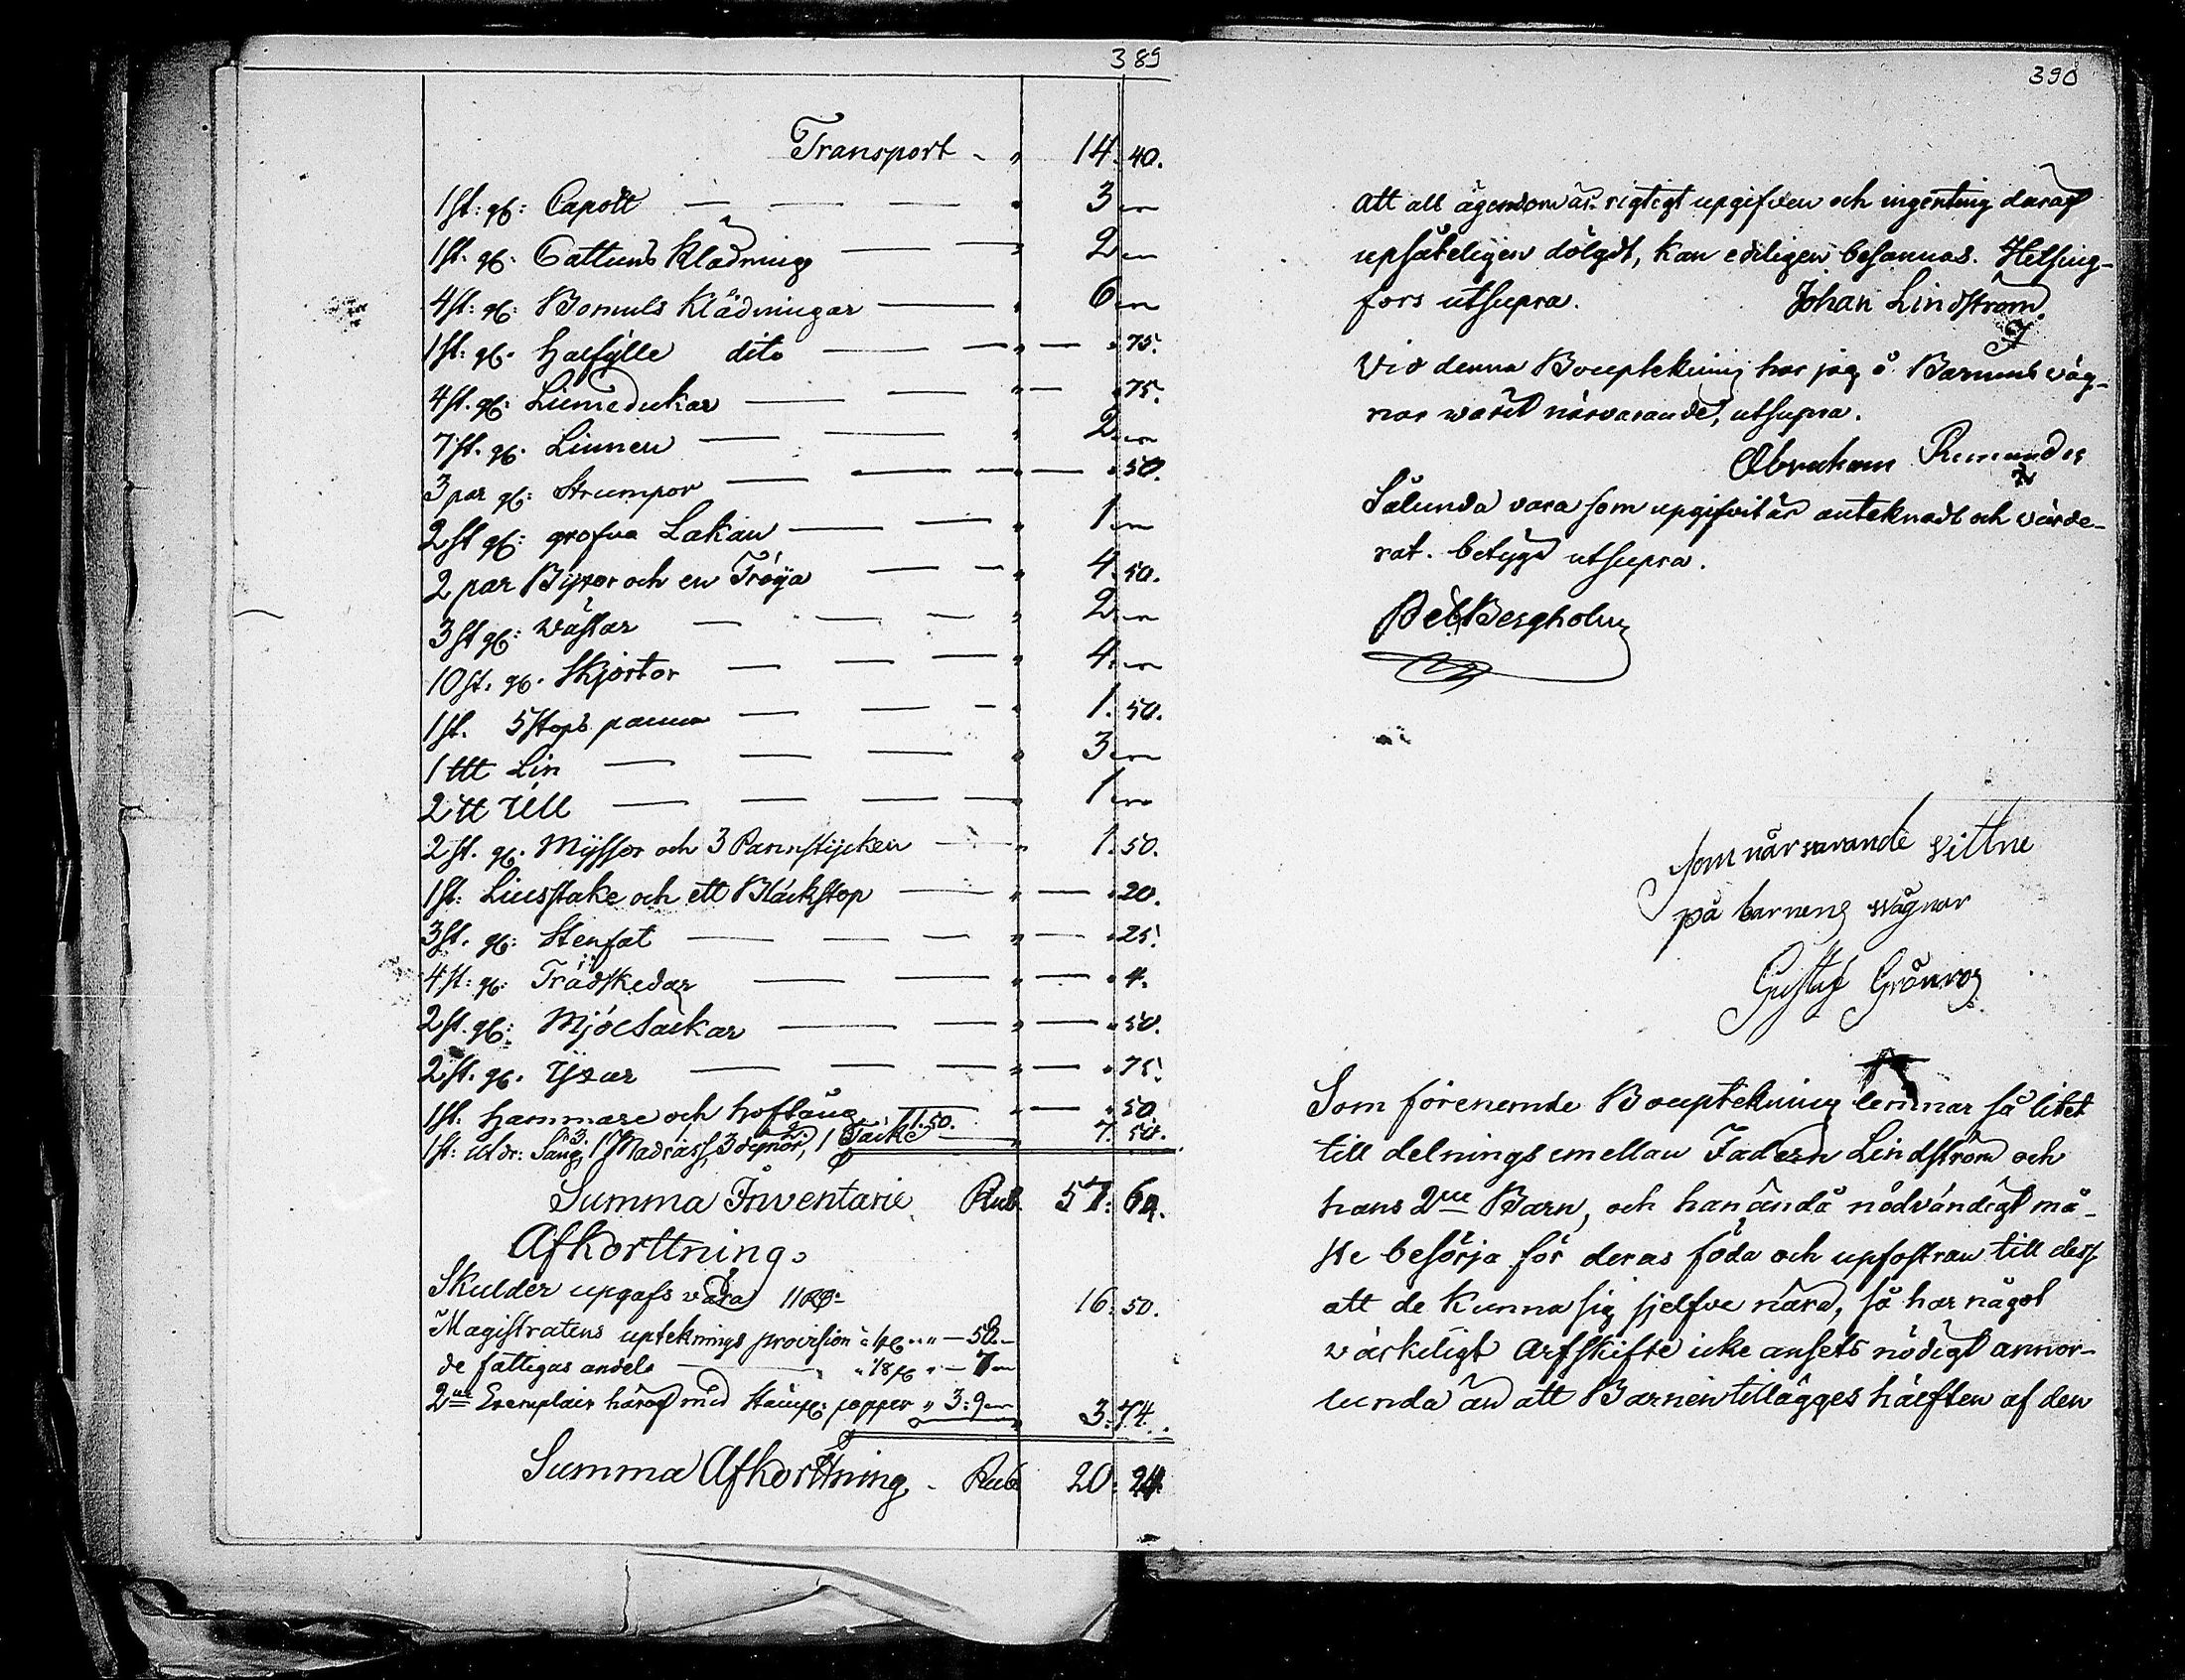 389
Transport - „ 14. 40.
1 st: gl: Capott — — — „ 3 „—
1 st. gl. Cattuns Klädning — — „ 2 „—
4 st: gl: Bomuls Klädningar — „ 6 „—
1 st: gl. Halfylle dito — — „ — „ 75.
4 st. gl: Linneducar — — „ — „ 75.
7 st. gl. Linnen — — „ 2 „—
3 par gl: Strumpor — — — „ — „ 50.
2 st gl: grofva Lakan — — „ 1 „—
2 par Byxor och en Tröya — — „ 4. 50.
3 st gl: Wästar — — — „ 2 „—
10 st. gl. Skjortor — — — „ 4 „—
1 st. 5 Stops panna — — - „ 1. 50.
1 ttt Lin — — — „ 3 „—
2 tt Ull — — — — „ 1 „—
2 st. gl. Myssor och 3 Pannstycken — „ 1. 50.
1 st: Liusstake och ett Bläckstop — „ — „ 20.
3 st. gl: Stenfat — — — „ — „ 25.
4 st: gl: Trädskedar — — „ — „ 4.
2 st. gl: Mjölsäckar — — „ — „ 50.
2 st. gl. Yxar — — — „ — „ 75.
1 st: Hammare och hoftång — „ — „ 50.
1 st: utdr: Säng, 1 Madrass, 3 dynor, 1 Täcke 1.50. 7. 50.
Summa Inventarie Rub. 57: 69.
Afkorttning.
Skulder upgafs vara 16. 50.
Magistratens upteknings provision
de fattigas andel — „ 1/8 pC „ — 7 „—
2ne Exemplair häraf med Stämpl: papper „ 3: 9 „— 3: 74.
Summa Afkorttning. Rub. 20. 24.
390
Att all ägendom är rigtigt upgifven och ingenting daraf
upsåteligen dölgdt, kan edeligen besannas. Helsing-
fors utsupra. Johan Lindström
Vid denna Bouptekning har jag å Barnens väg-
nar warit närvarande, utsupra.
Abraham
Sålunda vara som upgifvit är anteknadt och värde-
rat. betygs utsupra.
Bergholm
som närvarande vittne
på barnens wägnar
Gustaf Grönroos
Som förenemde Bouptekning lemnar så litet
till delnings emellan Fadern Lindström och
hans 2ne Barn, och han ändå nödvändigt må-
ste besörja för deras föda och upfostran till dess
att de kunna sig sjelfve nära, så har något
wärkeligt Arfskifte icke ansets nödigt annor-
lunda än att Barnen tillägges hälften af den